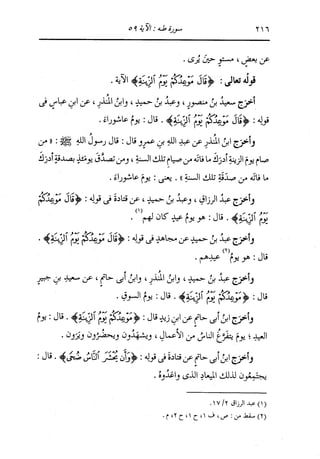 ٢١٦ سورة طه : الآية ٥٩
عن بعضٍ ، مستوٍ حين يُرى .
قولُه تعالى : ﴿قَالَ مَوْعِدُكُمْ يَوْمُ ٱلزِّينَةِ﴾ الآية .
أخرَج سعيدُ بنُ منصورٍ ، وعبدُ بنُ حميدٍ ، وابنُ المنذرِ ، عن ابنِ عباسٍ فى
قولِه : ﴿قَالَ مَوْعِدُكُمْ يَوْمُ ٱلزِّينَةِ﴾ . قال : يومُ عاشوراءَ .
وأخرَج ابنُ المنذرِ عن عبدِ اللهِ بنِ عمرٍو قال : قال رسولُ اللهِ ﷺ : « من
صام يومَ الزينةِ أدرَك ما فاته من صيامِ تلك السنةِ ، ومن تصدَّق يومَئذٍ بصدقةٍ أدرَك
ما فاته من صدقةِ تلك السنةِ » . يعنى : يومَ عاشوراءَ .
وأخرَج عبدُ الرزاقِ ، وعبدُ بنُ حميدٍ ، عن قتادةَ فى قولِه : ﴿قَالَ مَوْعِدُكُمْ
يَوْمُ ٱلزِّينَةِ﴾ . قال : هو يومُ عيدٍ كان لهم(١) .
وأخرَج عبدُ بنُ حميدٍ عن مجاهدٍ فى قولِه : ﴿قَالَ مَوْعِدُكُمْ يَوْمُ ٱلزِّينَةِ﴾ .
قال : هو يومُ(٢) عيدِهم .
وأخرَج عبدُ بنُ حميدٍ ، وابنُ المنذرِ ، وابنُ أبى حاتمٍ ، عن سعيدِ بنِ جبيرٍ
قال : ﴿مَوْعِدُكُمْ يَوْمُ ٱلزِّينَةِ﴾ . قال : يومُ السوقِ .
وأخرَج ابنُ أبى حاتمٍ عن ابنِ زيدٍ قال : ﴿مَوْعِدُكُمْ يَوْمُ ٱلزِّينَةِ﴾ . قال : يومُ
العيدِ ؛ يومَ يتفرَّغُ الناسُ من الأعمالِ ، ويشهَدون ويحضُرون ويَرَون .
وأخرَج ابنُ أبى حاتمٍ عن قتادةَ فى قولِه : ﴿وَأَن يُحْشَرَ ٱلنَّاسُ ضُحًى﴾ . قال :
يجتمِعون لذلك الميعادِ الذى واعَدُوه .
(١) عبد الرزاق ٢/ ١٧.
(٢) سقط من : ص، ف ١، ح ١، ح ٢، م .